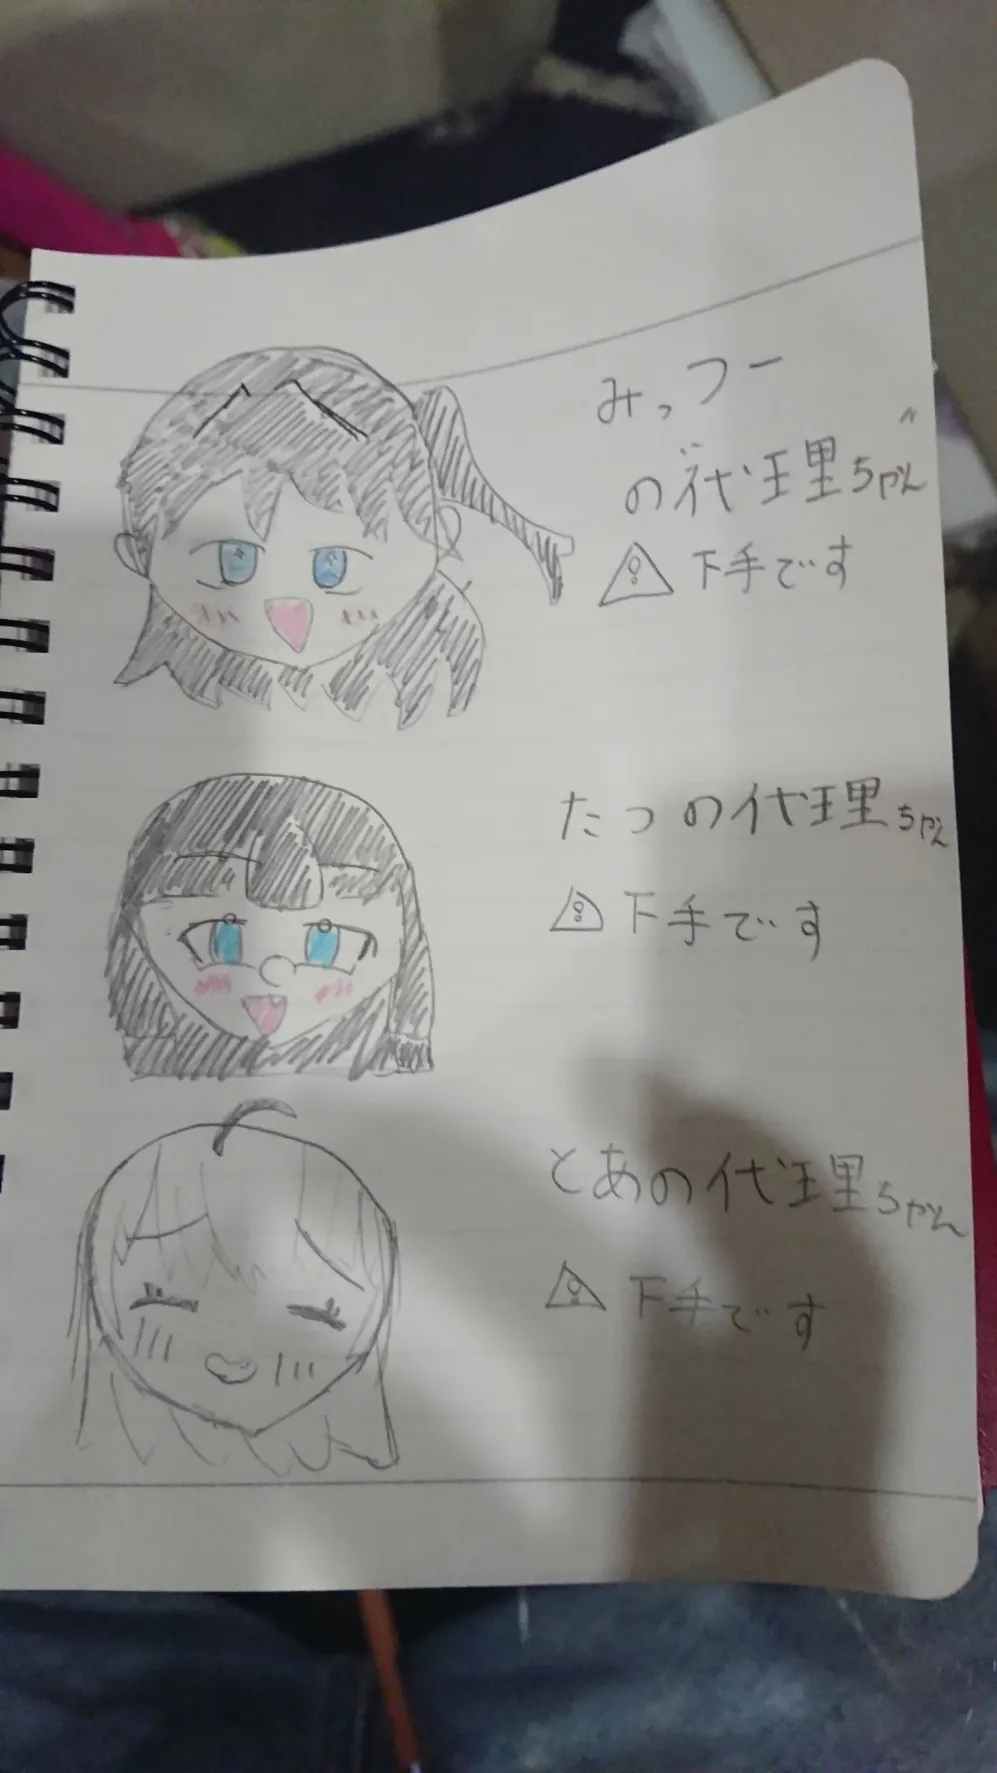 みっつー
の"代理ちゃん"
⚠下手です
たつの代理ちゃん
⚠下手です
とあの代理ちゃん
⚠下手です